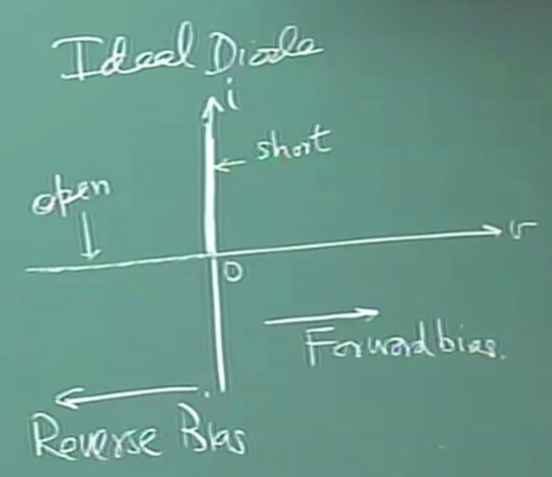 Ideal Diode
i
short
open
v
0
Forward bias.
Reverse Bias